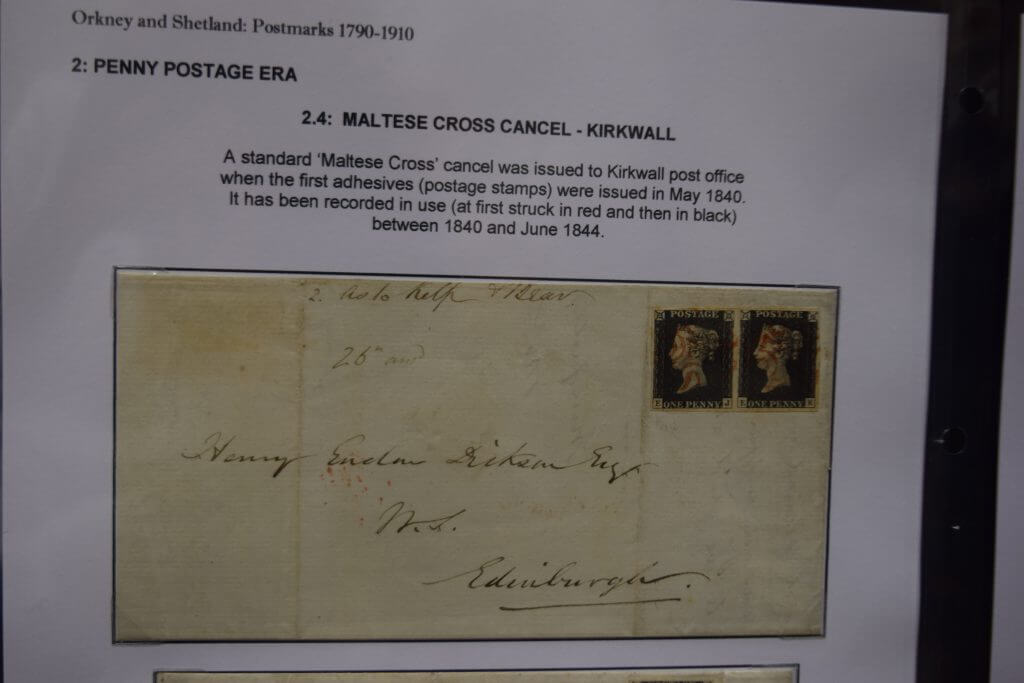 Orkney and Shetland: Postmarks 1790-1910
2: PENNY POSTAGE ERA
2.4: MALTESE CROSS CANCEL - KIRKWALL
A standard 'Maltese Cross' cancel was issued to Kirkwall post office
when the first adhesives (postage stamps) were issued in May 1840.
It has been recorded in use (at first struck in red and then in black)
between 1840 and June 1844.
2. As to help &
POSTAGE POSTAGE
26
E J E K
ONE PENNY ONE PENNY
Henry Dickson Esqr
W.S.
Edinburgh.